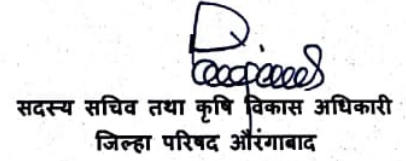 सदस्य सचिव तथा कृषि विकास अधिकारी
जिल्हा परिषद औरंगाबाद